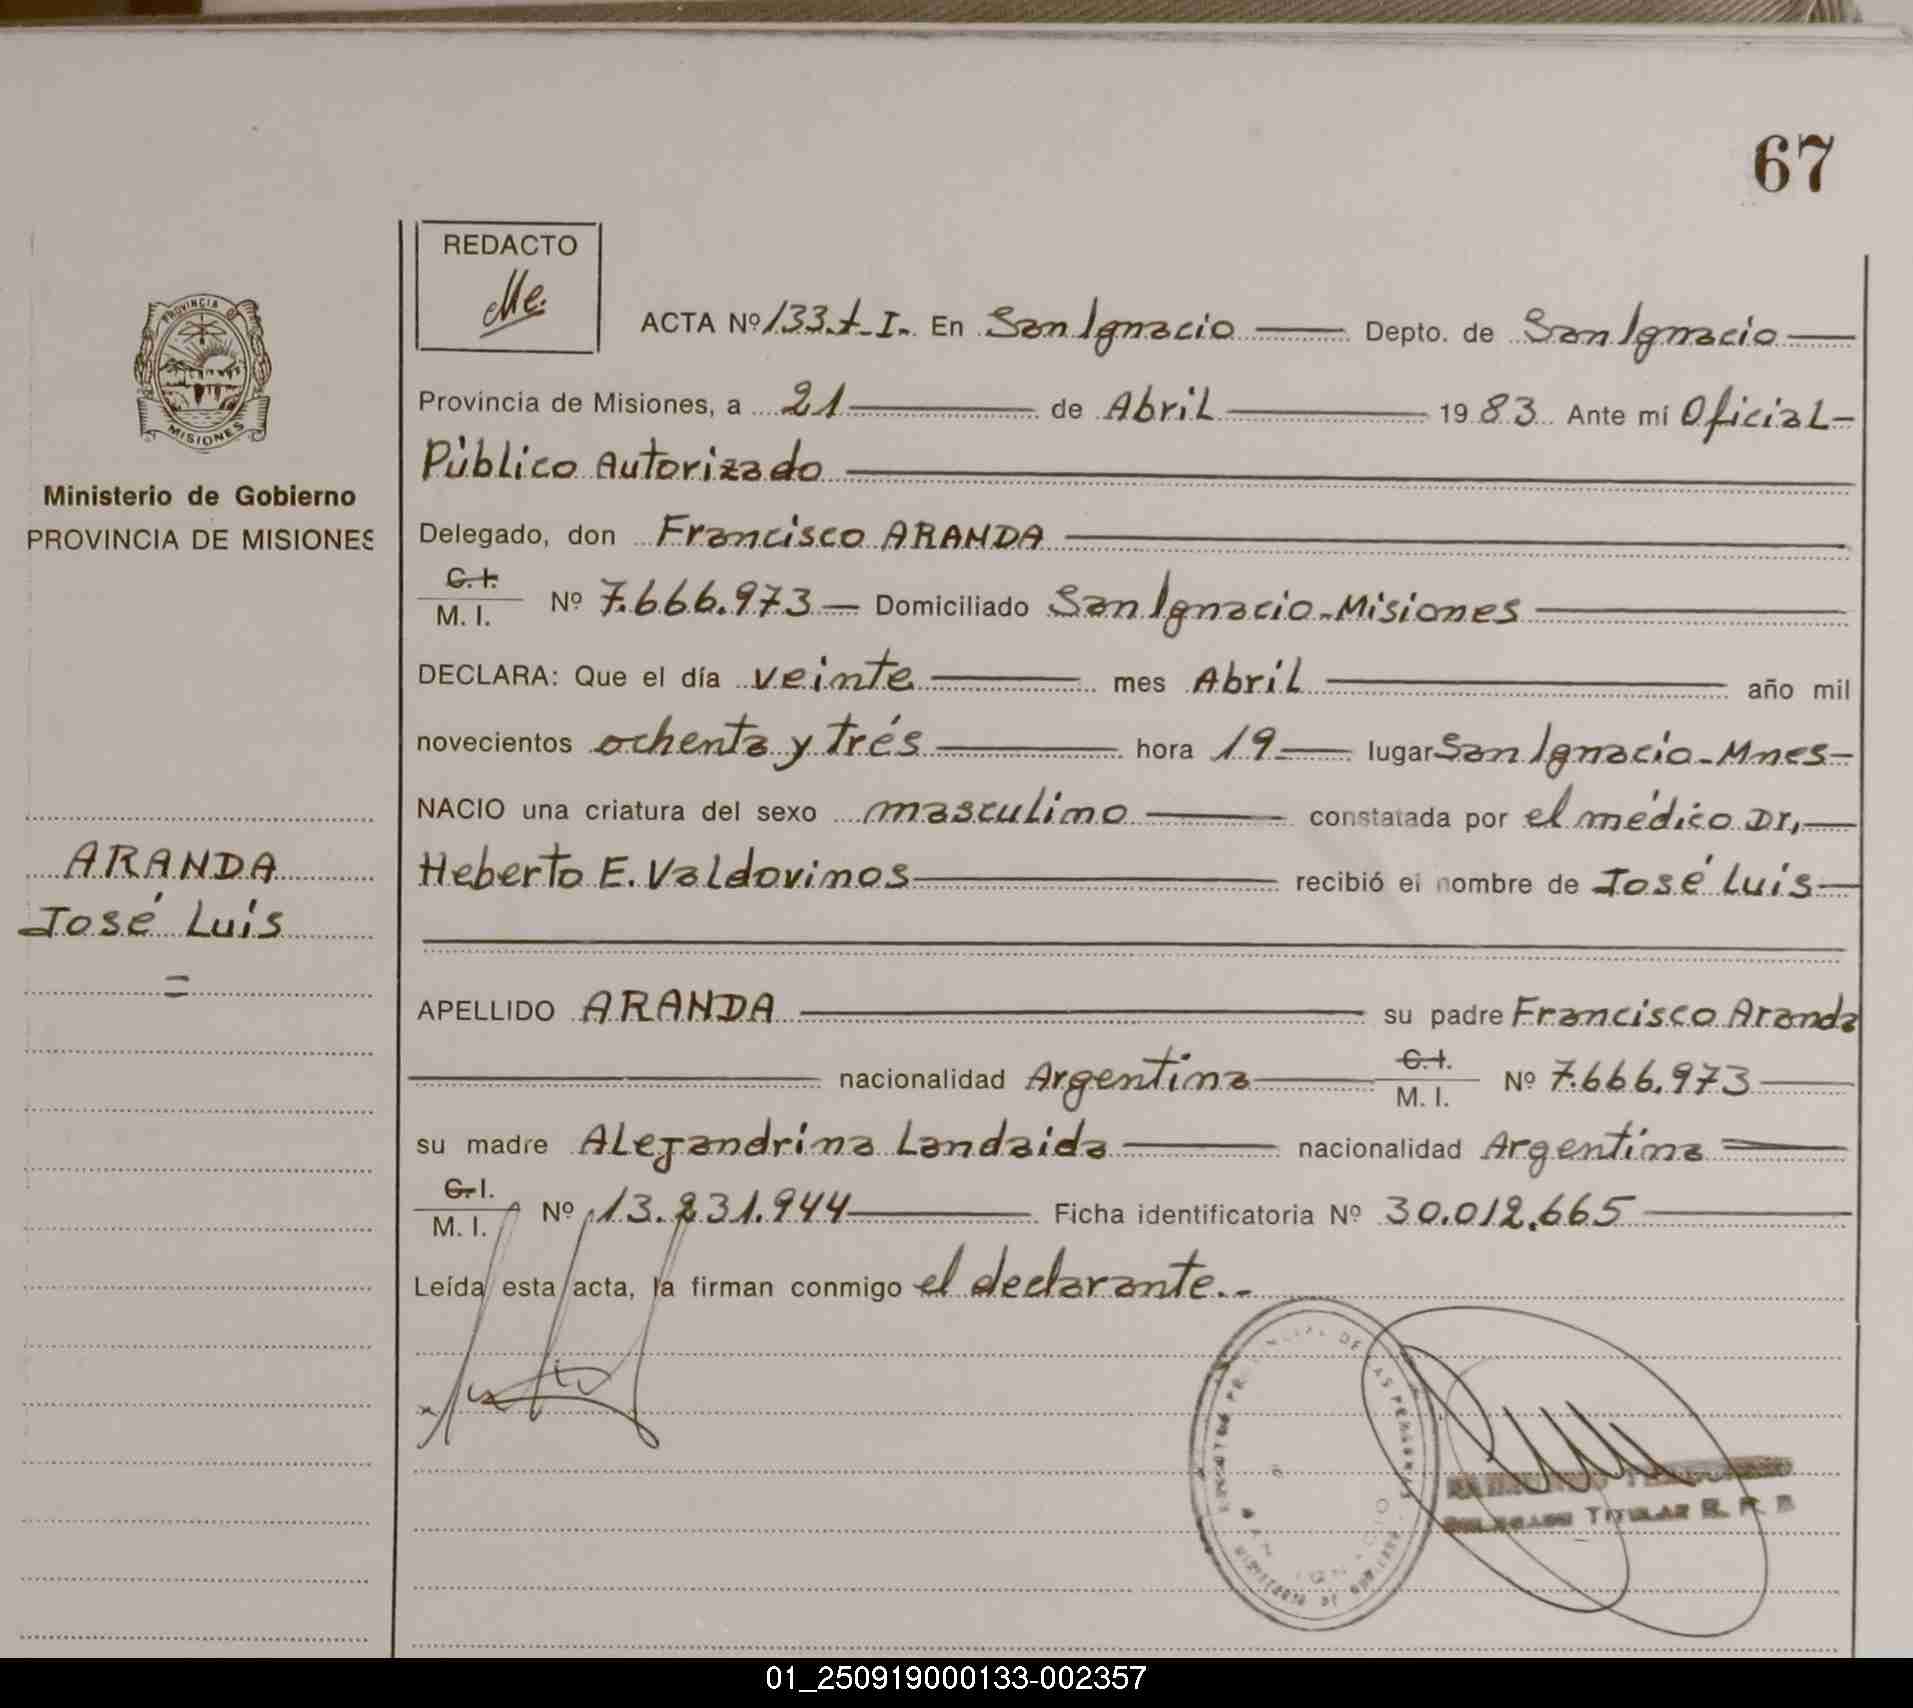 67
REDACTO
Me.
ACTA Nº 133.t-I-. En San Ignacio Depto. de San Ignacio
Provincia de Misiones, a 21 de Abril 1983 Ante mí Oficial-
Público Autorizado
Delegado, don Francisco ARANDA
C. I.
M. I. Nº 7.666.973 Domiciliado San Ignacio-Misiones
DECLARA: Que el día veinte mes Abril año mil
novecientos ochenta y trés hora 19 lugar San Ignacio-Mnes-
NACIO una criatura del sexo masculino constatada por el médico Dr,
Heberto E. Valdovinos recibió el nombre de José Luis
APELLIDO ARANDA su padre Francisco Aranda
nacionalidad Argentina C. I.
M. I. Nº 7.666.973
su madre Alejandrina Landaida nacionalidad Argentina
C. I.
M. I. Nº 13.231.944 Ficha identificatoria Nº 30.012.665
Leída esta acta, la firman conmigo el declarante.-
PROVINCIA DE
MISIONES
Ministerio de Gobierno
PROVINCIA DE MISIONES
ARANDA
José Luis
DE LAS PERSONAS
MINISTERIO DE GOBIERNO
DELEGADO TITULAR R. P. P
01_250919000133-002357